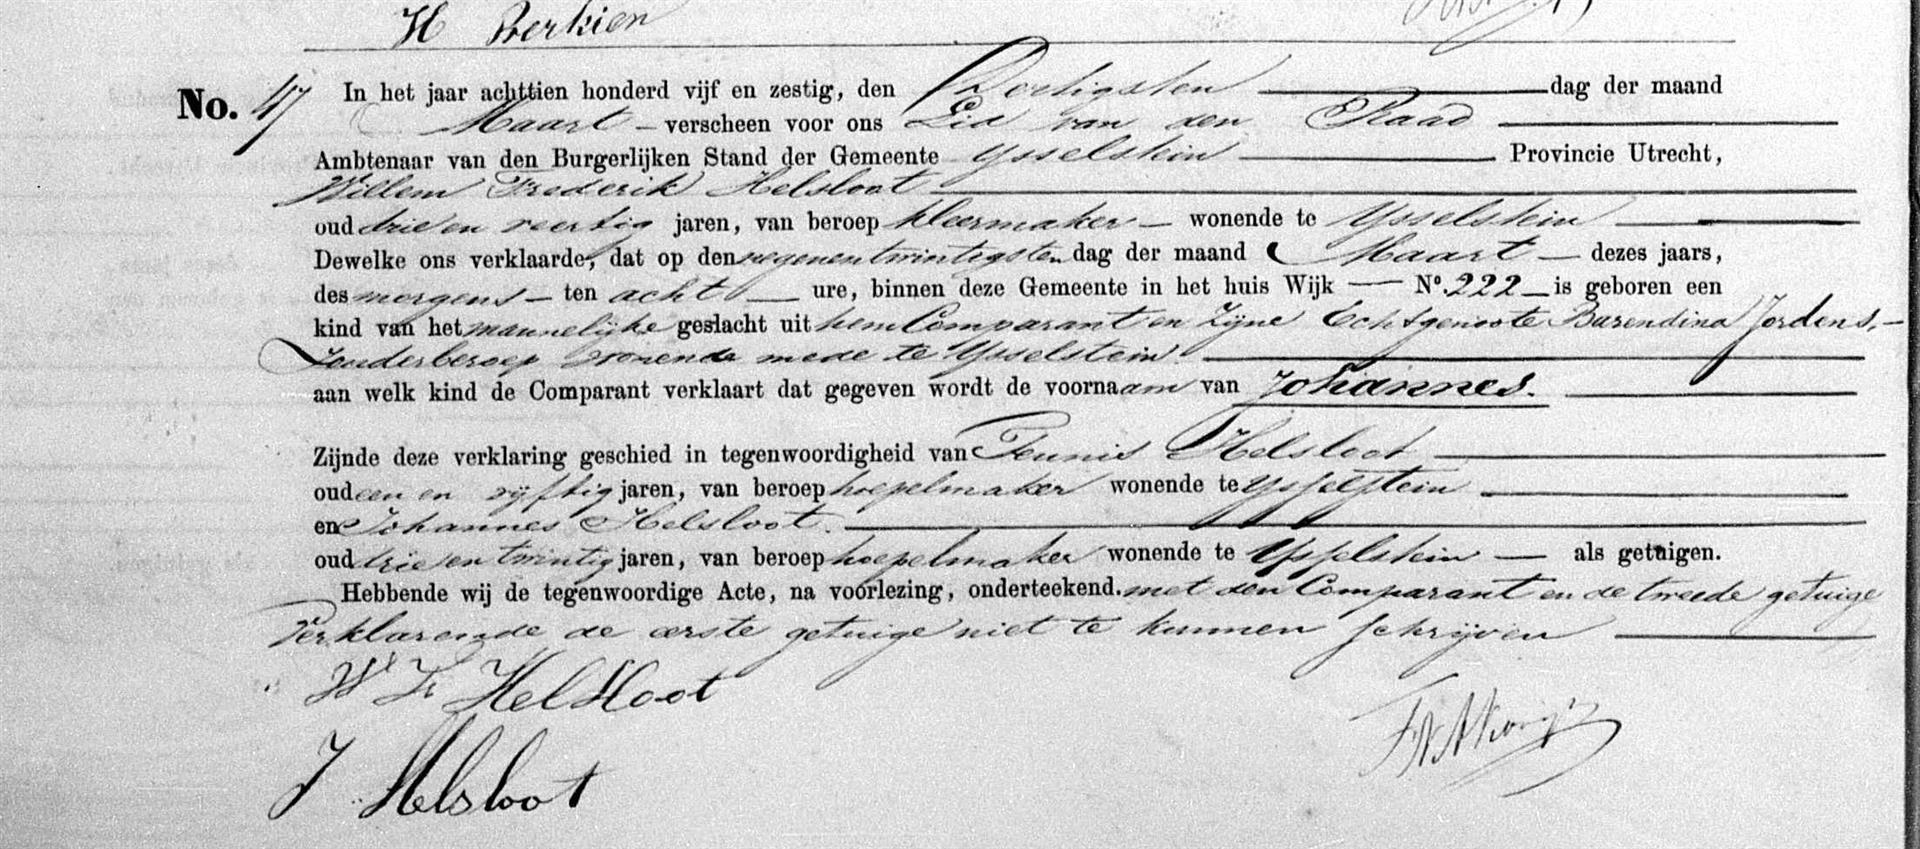 H Berkien
No. 47 In het jaar achttien honderd vijf en zestig, den Dertigsten dag der maand
Maart verscheen voor ons Lid van den Raad
Ambtenaar van den Burgerlijken Stand der Gemeente Ysselstein Provincie Utrecht,
Willem Frederik Helsloot
oud drie en veertig jaren, van beroep kleermaker wonende te Ysselstein
Dewelke ons verklaarde, dat op den negenentwintigsten dag der maand Maart dezes jaars,
des morgens ten acht ure, binnen deze Gemeente in het huis Wijk No. 222 is geboren een
kind van het mannelijke geslacht uit hem Comparant en zijne Echtgenoote Barendina Jordens,
Zonder beroep wonende mede te Ysselstein
aan welk kind de Comparant verklaart dat gegeven wordt de voornaam van Johannes.
Zijnde deze verklaring geschied in tegenwoordigheid van Teunis Helsloot
oud een en vijftig jaren, van beroep hoepelmaker wonende te Ysselstein
en Johannes Helsloot.
oud drie en twintig jaren, van beroep hoepelmaker wonende te Ysselstein als getuigen.
Hebbende wij de tegenwoordige Acte, na voorlezing, onderteekend. met den Comparant en de tweede getuige
Verklarende de eerste getuige niet te kunnen schrijven
W F Helsloot
J Helsloot